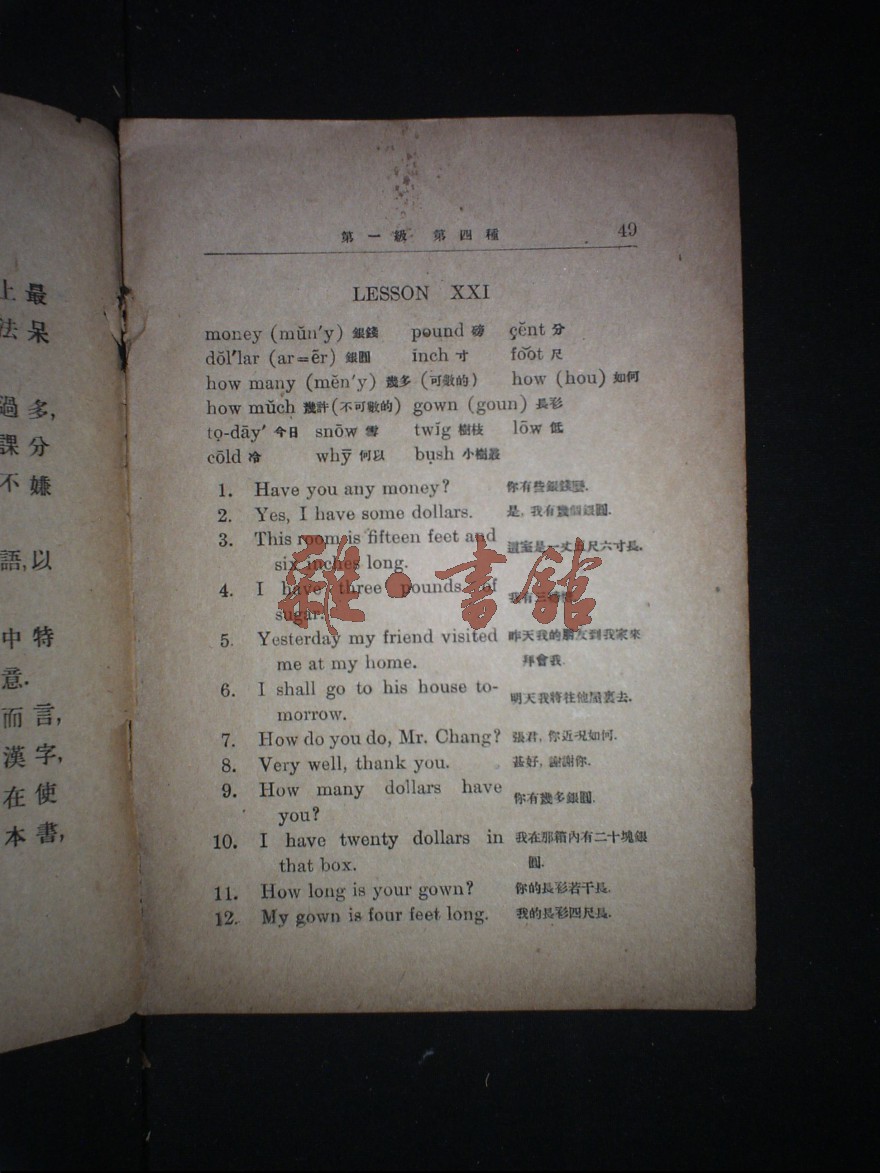 上最
法呆
過多,
課分
不嫌
語,以
中特
意.
而言,
漢字,
在使
本書,
第一級 第四種 49
LESSON XXI
money (mŭn′y) 銀錢 pound 磅 çĕnt 分
dŏl′lar (ar=ẽr) 銀圓 ĭnch 寸 fo͝ot 尺
how many (mĕn′y) 幾多 (可數的) how (hou) 如何
how mŭch 幾許 (不可數的) gown (goun) 長衫
tọ-dāy′ 今日 snōw 雪 twĭg 樹枝 lōw 低
cōld 冷 whȳ 何以 bụsh 小樹叢
1. Have you any money? 你有些銀錢麼.
2. Yes, I have some dollars. 是, 我有幾個銀圓.
3. This room is fifteen feet and 這室是一丈五尺六寸長.
six inches long.
4. I have three pounds of 我有三磅糖.
sugar.
5. Yesterday my friend visited 昨天我的朋友到我家來
me at my home. 拜會我.
6. I shall go to his house to- 明天我將往他屋裏去.
morrow.
7. How do you do, Mr. Chang? 張君, 你近況如何.
8. Very well, thank you. 甚好, 謝謝你.
9. How many dollars have 你有幾多銀圓.
you?
10. I have twenty dollars in 我在那箱內有二十塊銀
that box. 圓.
11. How long is your gown? 你的長衫若干長.
12. My gown is four feet long. 我的長衫四尺長.
雜·書館